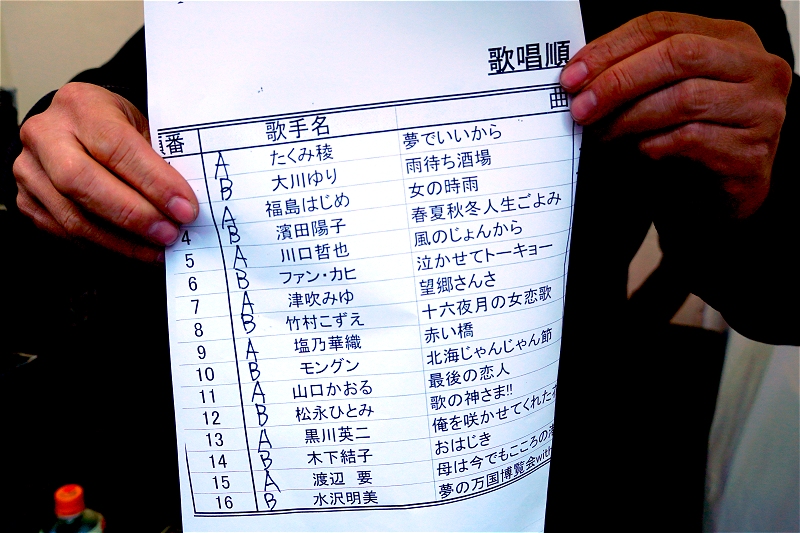 歌唱順
番 歌手名 曲
A たくみ稜 夢でいいから
B 大川ゆり 雨待ち酒場
A 福島はじめ 女の時雨
4 B 濱田陽子 春夏秋冬人生ごよみ
5 A 川口哲也 風のじょんから
6 B ファン・カヒ 泣かせてトーキョー
7 A 津吹みゆ 望郷さんさ
8 B 竹村こずえ 十六夜月の女恋歌
9 A 塩乃華織 赤い橋
10 B モングン 北海じゃんじゃん節
11 A 山口かおる 最後の恋人
12 B 松永ひとみ 歌の神さま!!
13 A 黒川英二 俺を咲かせてくれた
14 B 木下結子 おはじき
15 A 渡辺 要 母は今でもこころの
16 B 水沢明美 夢の万国博覧会with